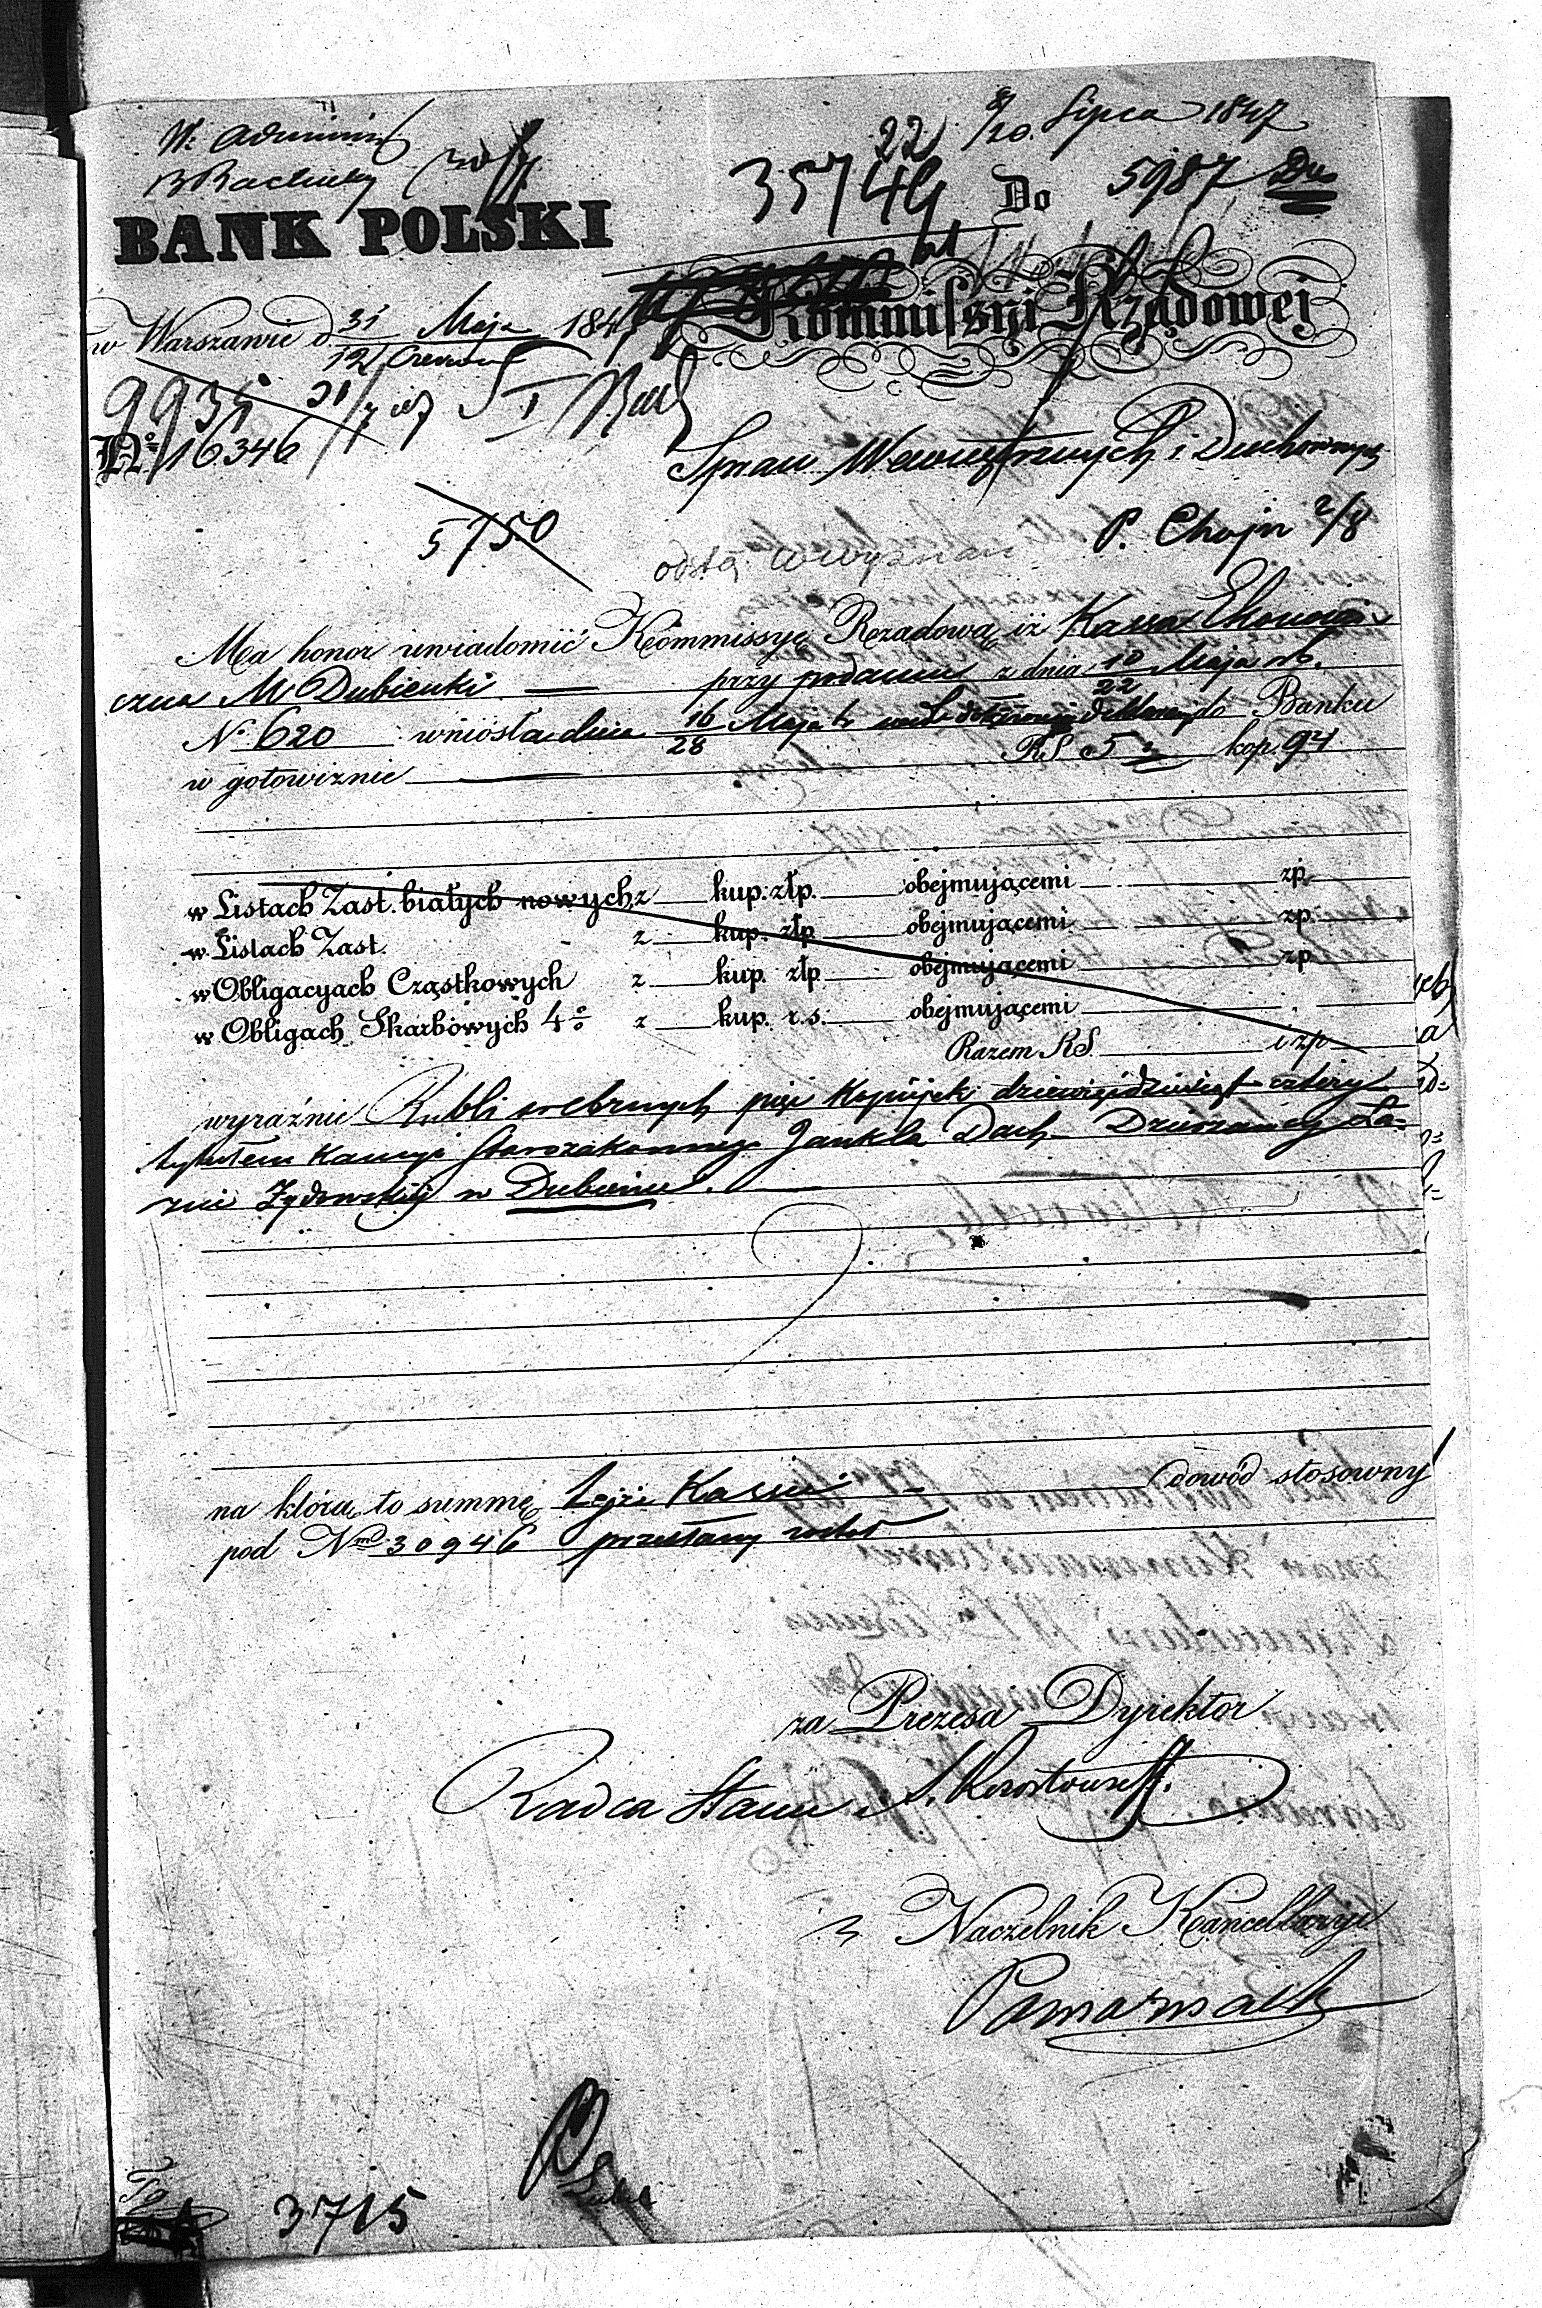 W. Administ
8/20. Lipca 1847
22
35744
Do 5987 Du
BANK POLSKI
Kommissyi Rządowej
w Warszawie d 31 Maja 184
12 Czerwca
9935 31/7 47
No 16346
Spraw Wewnętrznych i Duchownych
5750
P. Chojn 2/8
Ma honor uwiadomić Kommissyę Rządową iż Kassa Ekonomi
czna M Dubienki przy podaniu z dnia 10/22 Maja rb.
No 620 wniosła dnia 16/28 Maja do Banku
w gotowiznie RS 5 kop. 94
w Listach Zast. białych nowych z kup. złp. obejmującemi zp.
w Listach Zast. z kup. złp. obejmującemi zp.
w Obligacyach Cząstkowych z kup. złp. obejmującemi zp.
w Obligach Skarbowych 4% z kup. r.s. obejmującemi
Razem RS. i zp
wyraźnie Rubli srebrnych pięć kopiejek dziewięćdziesiąt cztery
tytułem kaucyi Starozakonnego Jankla Dach Dzierżawcy Ła=
zni Żydowskiej w Dubience.
na którą to summę tejże Kassie dowód stosowny
pod Nm 30946 przesłany został
za Prezesa Dyrektor
Radca Stanu
Naczelnik Kancellaryi
3715